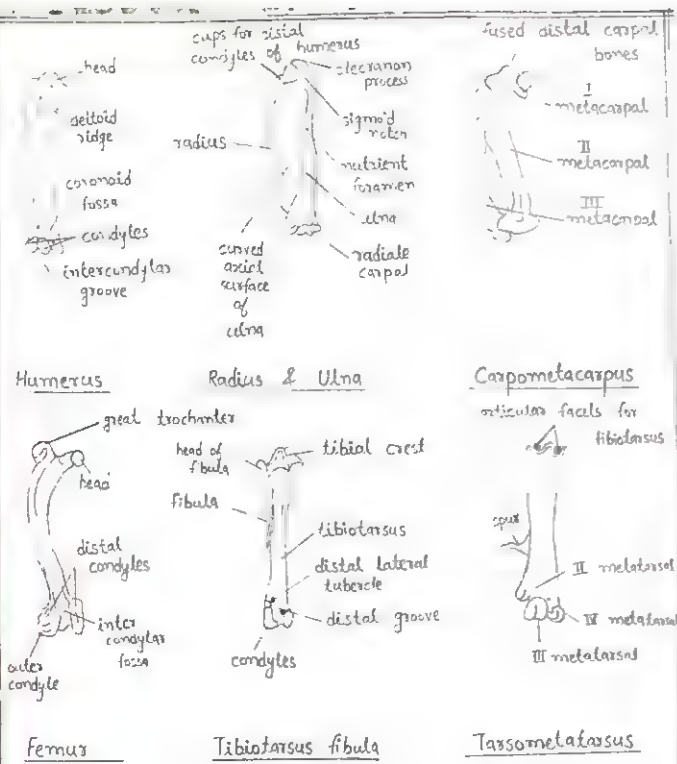 head
deltoid
ridge
coronoid
fossa
condyles
intercondylar
groove
Humerus
cups for distal
condyles of humerus
olecranon
process
sigmoid
notch
radius
nutrient
foramen
ulna
curved
axial
surface
of
ulna
radiale
carpal
Radius & Ulna
fused distal carpal
bones
I
metacarpal
II
metacarpal
III
metacarpal
Carpometacarpus
great trochanter
head
distal
condyles
inter
condylar
fossa
outer
condyle
Femur
head of
fibula
tibial crest
fibula
tibiotarsus
distal lateral
tubercle
distal groove
condyles
Tibiotarsus fibula
articular facets for
tibiotarsus
spur
II metatarsal
IV metatarsal
III metatarsal
Tarsometatarsus